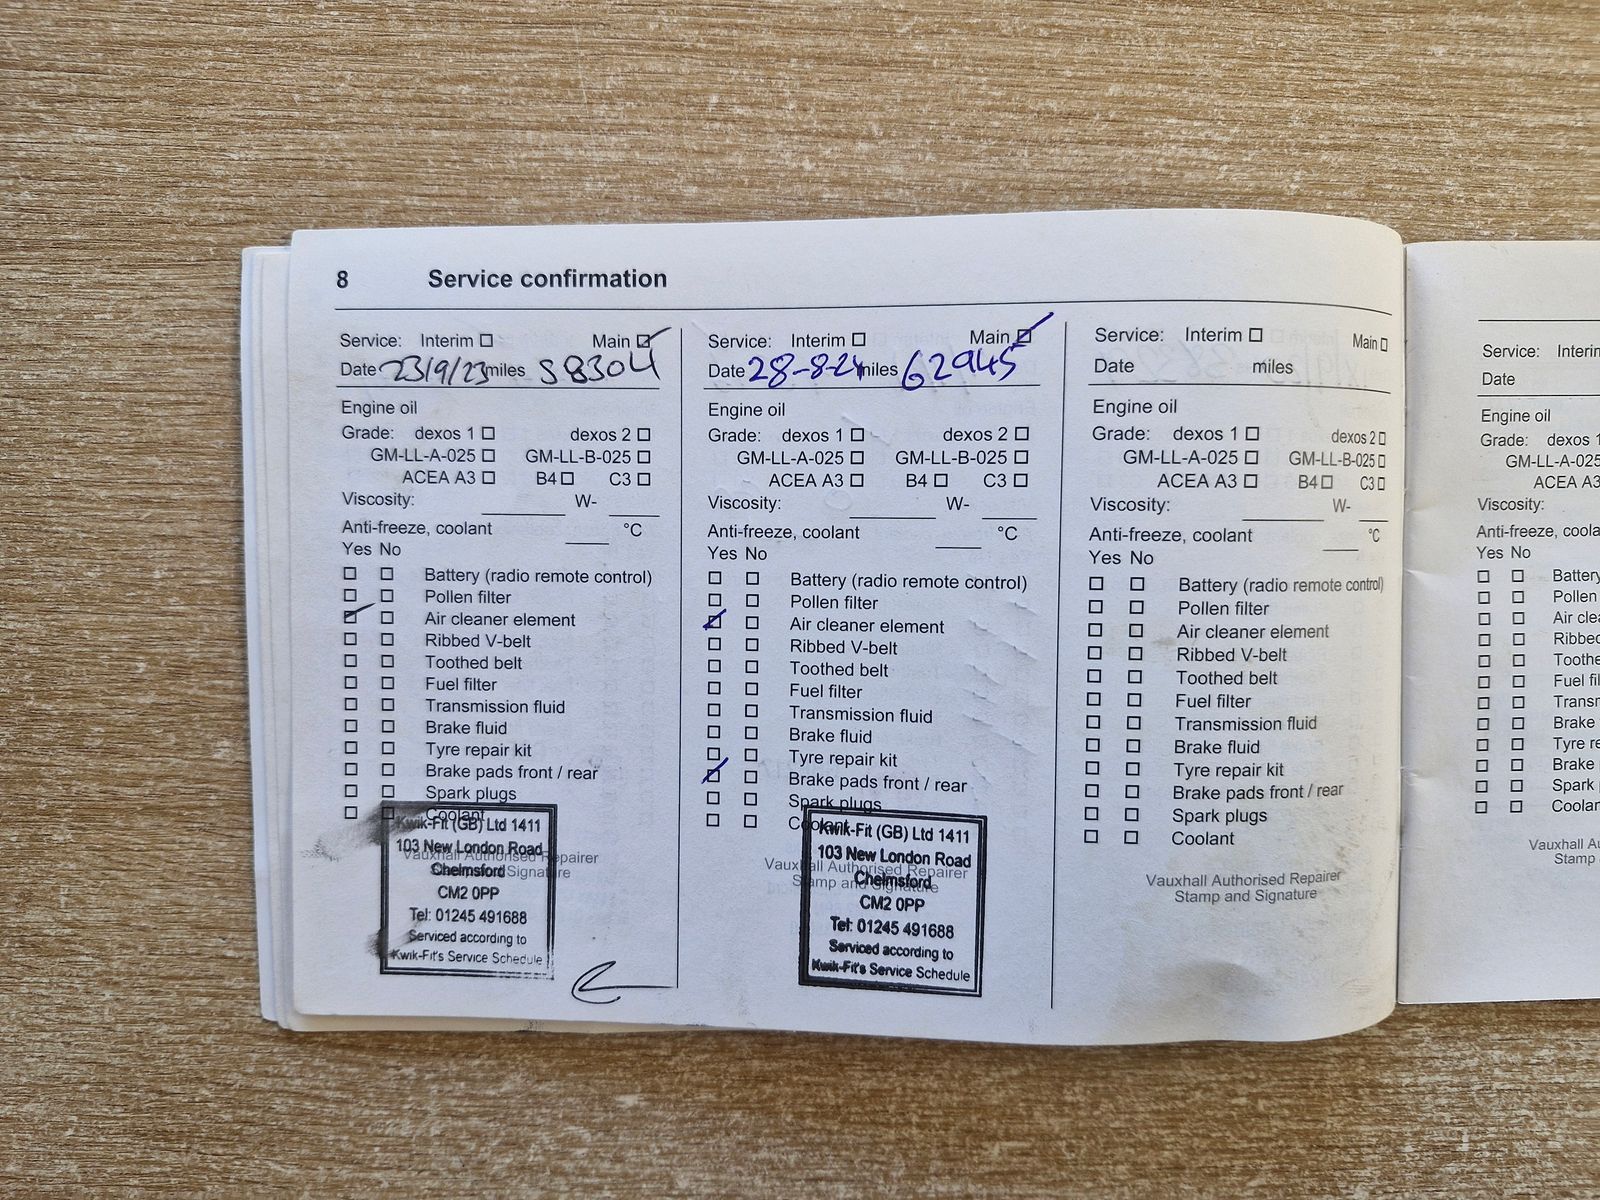 8 Service confirmation
Service: Interim Main
Date 23/9/23 miles 58304
Engine oil
Grade: dexos 1 dexos 2
GM-LL-A-025 GM-LL-B-025
ACEA A3 B4 C3
Viscosity: W-
Anti-freeze, coolant °C
Yes No
Battery (radio remote control)
Pollen filter
Air cleaner element
Ribbed V-belt
Toothed belt
Fuel filter
Transmission fluid
Brake fluid
Tyre repair kit
Brake pads front / rear
Spark plugs
Coolant
Vauxhall Authorised Repairer
Stamp and Signature
Kwik-Fit (GB) Ltd 1411
103 New London Road
Chelmsford
CM2 0PP
Tel: 01245 491688
Serviced according to
Kwik-Fit's Service Schedule
Service: Interim Main
Date 28-8-24 miles 62945
Engine oil
Grade: dexos 1 dexos 2
GM-LL-A-025 GM-LL-B-025
ACEA A3 B4 C3
Viscosity: W-
Anti-freeze, coolant °C
Yes No
Battery (radio remote control)
Pollen filter
Air cleaner element
Ribbed V-belt
Toothed belt
Fuel filter
Transmission fluid
Brake fluid
Tyre repair kit
Brake pads front / rear
Spark plugs
Coolant
Vauxhall Authorised Repairer
Stamp and Signature
Kwik-Fit (GB) Ltd 1411
103 New London Road
Chelmsford
CM2 0PP
Tel: 01245 491688
Serviced according to
Kwik-Fit's Service Schedule
Service: Interim Main
Date miles
Engine oil
Grade: dexos 1 dexos 2
GM-LL-A-025 GM-LL-B-025
ACEA A3 B4 C3
Viscosity: W-
Anti-freeze, coolant °C
Yes No
Battery (radio remote control)
Pollen filter
Air cleaner element
Ribbed V-belt
Toothed belt
Fuel filter
Transmission fluid
Brake fluid
Tyre repair kit
Brake pads front / rear
Spark plugs
Coolant
Vauxhall Authorised Repairer
Stamp and Signature
Service: Interim
Date
Engine oil
Grade: dexos 1
GM-LL-A-025
ACEA A3
Viscosity:
Anti-freeze, coola
Yes No
Battery
Pollen
Air clea
Ribbed
Toothe
Fuel fil
Transm
Brake
Tyre re
Brake
Spark
Coolan
Vauxhall Au
Stamp